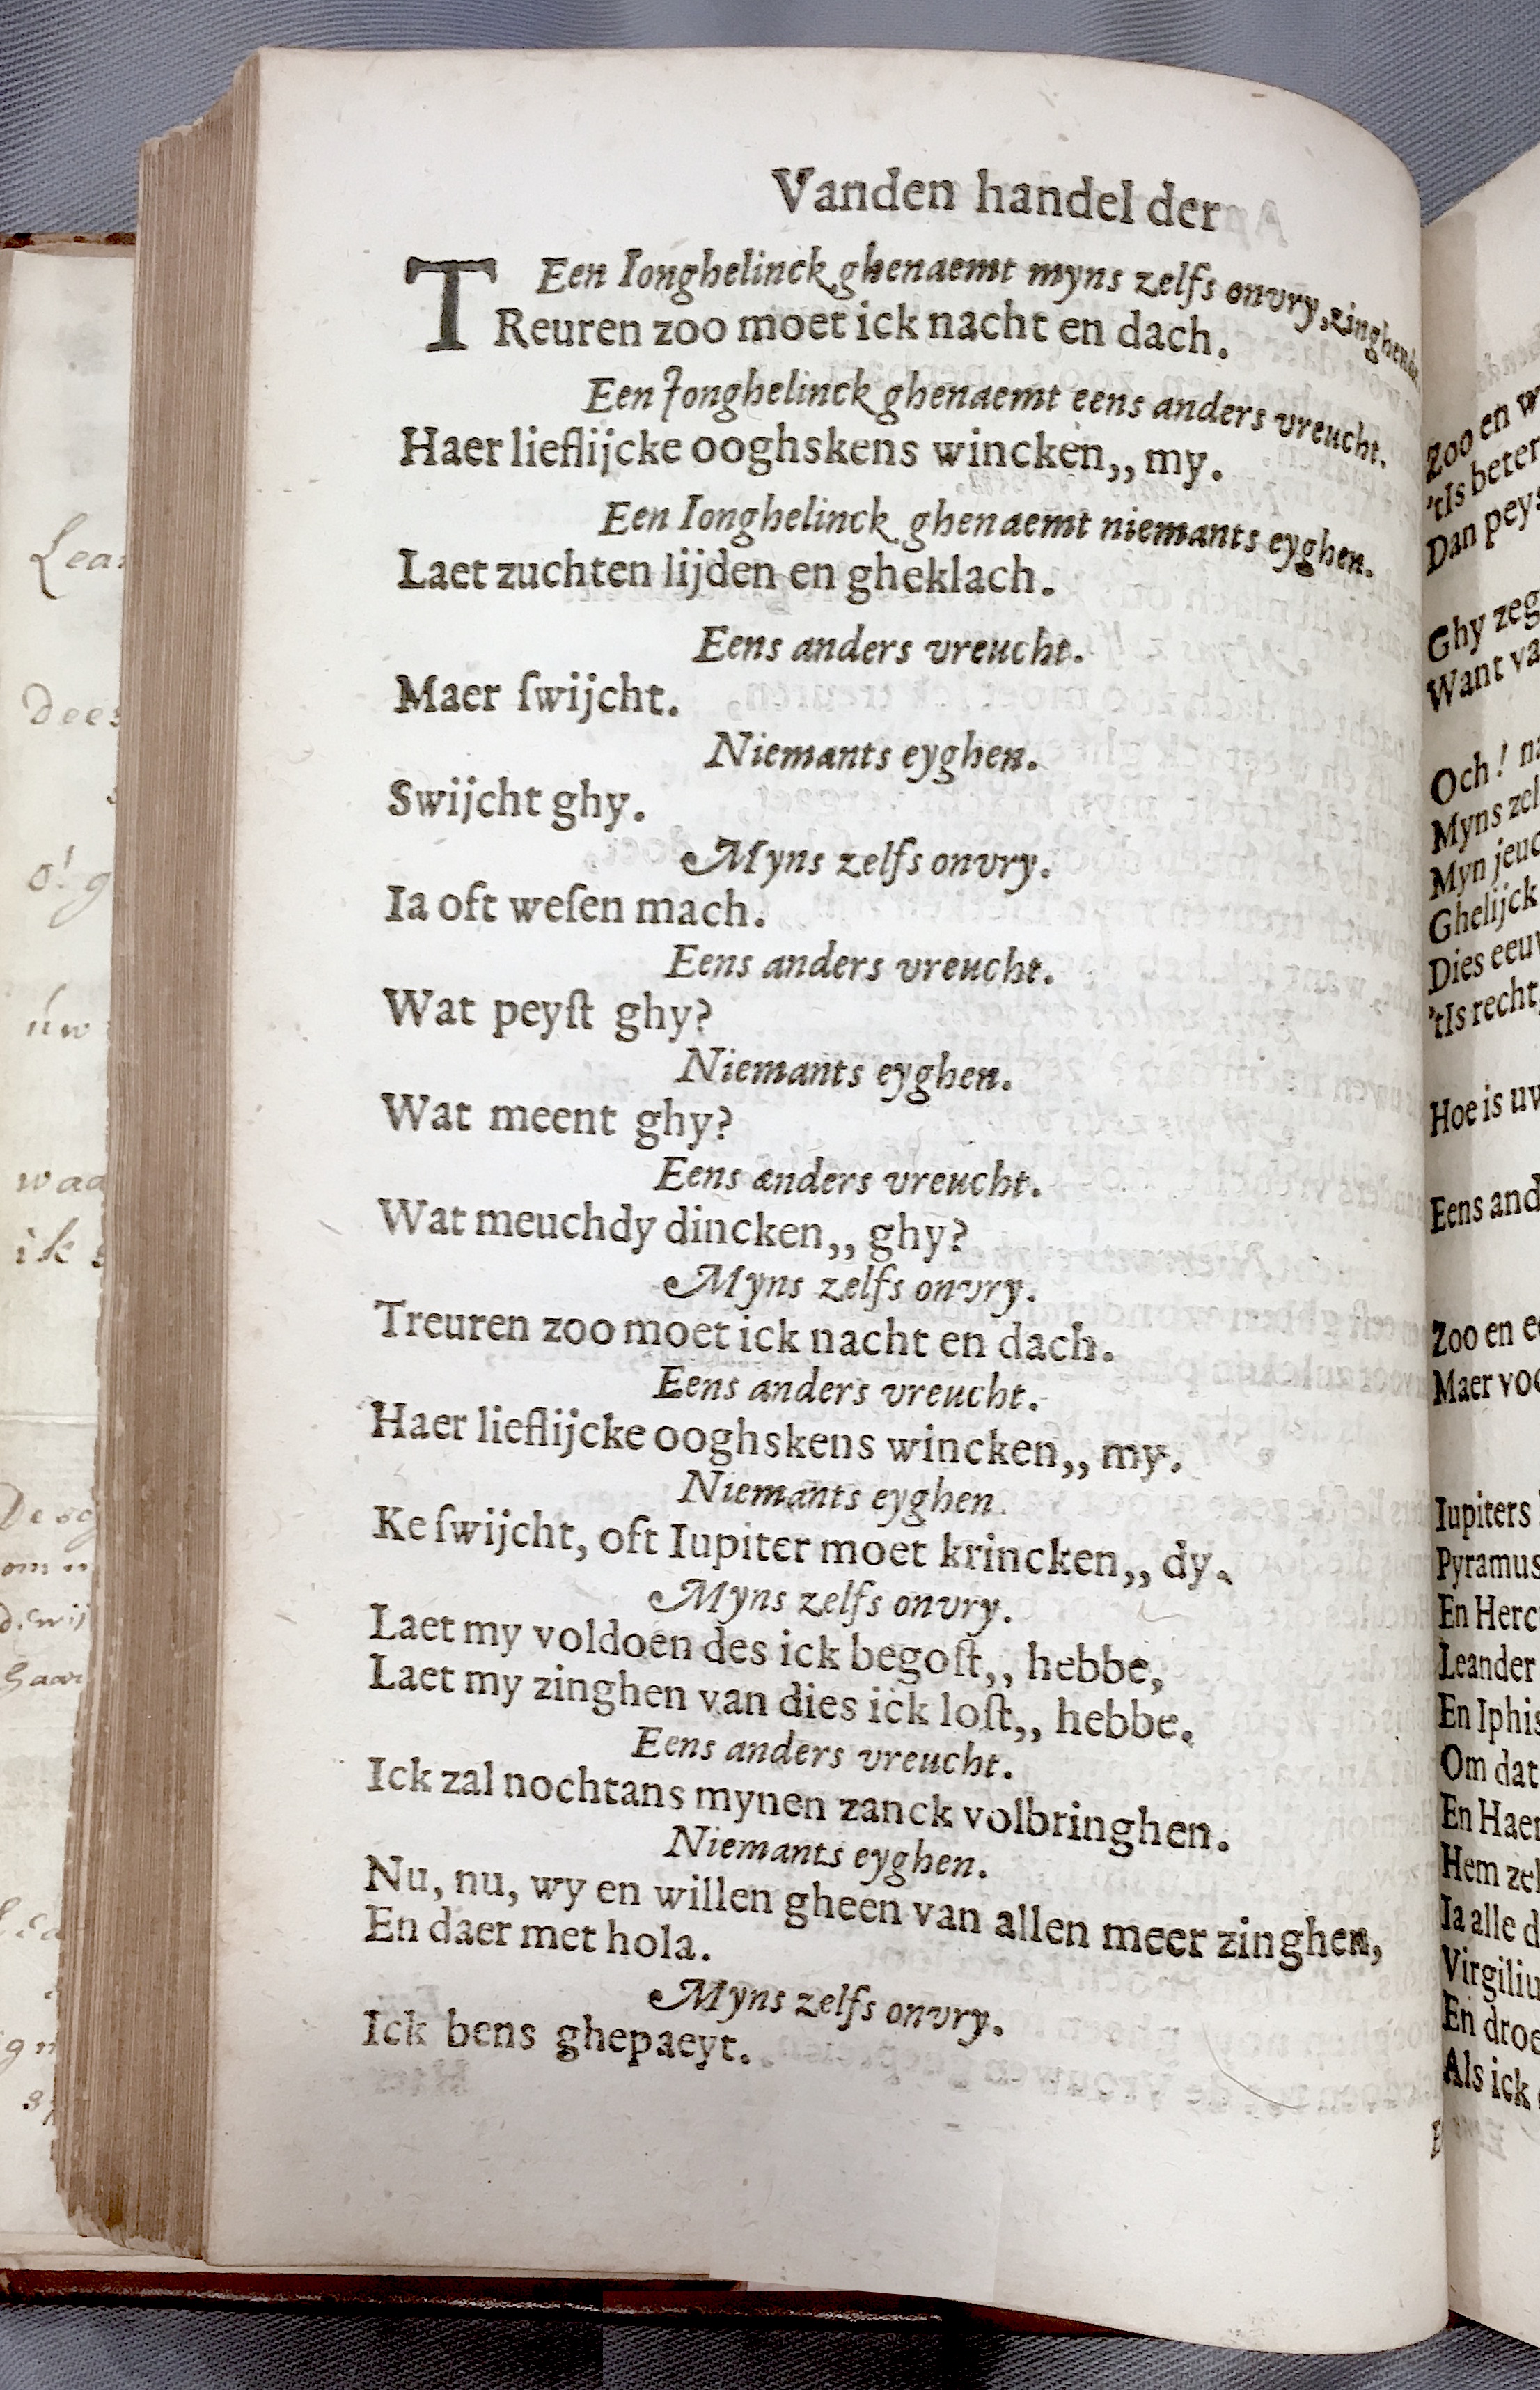 Vanden handel der
Een Ionghelinck ghenaemt myns zelfs onvry, zinghende
TReuren zoo moet ick nacht en dach.
Een Jonghelinck ghenaemt eens anders vreucht.
Haer lieflijcke ooghskens wincken,, my.
Een Ionghelinck ghenaemt niemants eyghen.
Laet zuchten lijden en gheklach.
Eens anders vreucht.
Maer ſwijcht.
Niemants eyghen.
Swijcht ghy.
Myns zelfs onvry.
Ia oft weſen mach.
Eens anders vreucht.
Wat peyſt ghy?
Niemants eyghen.
Wat meent ghy?
Eens anders vreucht.
Wat meuchdy dincken,, ghy?
Myns zelfs onvry.
Treuren zoo moet ick nacht en dach.
Eens anders vreucht.
Haer lieflijcke ooghskens wincken,, my.
Niemants eyghen.
Ke ſwijcht, oft Iupiter moet krincken,, dy.
Myns zelfs onvry.
Laet my voldoen des ick begoſt,, hebbe,
Laet my zinghen van dies ick loſt,, hebbe.
Eens anders vreucht.
Ick zal nochtans mynen zanck volbringhen.
Niemants eyghen.
Nu, nu, wy en willen gheen van allen meer zinghen,
En daer met hola.
Myns zelfs onvry.
Ick bens ghepaeyt.
Zoo en
'tIs beter
Dan
Ghy
Want
Och!
Myns
Myn
Ghelijck
Dies
'tIs recht
Hoe is
Eens
Zoo en
Maer
Iupiters
Pyramus
En
Leander
En Iphis
Om dat
En
Hem
Ia alle
En
Als ick